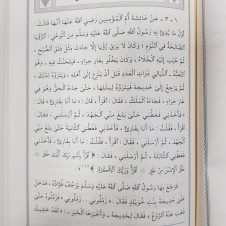 ٣٠١ - عَنْ عَائِشَةَ أُمِّ الْمُؤْمِنِينَ رَضِيَ اللَّهُ عَنْهَا أَنَّهَا قَالَتْ :
مَا بُدِئَ بِهِ رَسُولُ اللَّهِ صَلَّى اللَّهُ عَلَيْهِ وَسَلَّمَ مِنَ الْوَحْيِ : الرُّؤْيَا
الصَّالِحَةُ فِي النَّوْمِ ، وَكَانَ لَا يَرَى رُؤْيَا إِلَّا جَاءَتْ مِثْلَ فَلَقِ الصُّبْحِ ،
ثُمَّ حُبِّبَ إِلَيْهِ الْخَلَاءُ ، وَكَانَ يَخْلُو بِغَارِ حِرَاءٍ ، فَيَتَحَنَّثُ فِيهِ - وَهُوَ
التَّعَبُّدُ - اللَّيَالِيَ ذَوَاتِ الْعَدَدِ قَبْلَ أَنْ يَنْزِعَ إِلَى أَهْلِهِ ، وَيَتَزَوَّدُ لِذَلِكَ ،
ثُمَّ يَرْجِعُ إِلَى خَدِيجَةَ فَيَتَزَوَّدُ لِمِثْلِهَا ، حَتَّى جَاءَهُ الْحَقُّ وَهُوَ فِي
غَارِ حِرَاءٍ ، فَجَاءَهُ الْمَلَكُ ، فَقَالَ : اقْرَأْ ، قَالَ : « مَا أَنَا بِقَارِئٍ » قَالَ :
« فَأَخَذَنِي فَغَطَّنِي حَتَّى بَلَغَ مِنِّي الْجَهْدَ ، ثُمَّ أَرْسَلَنِي ، فَقَالَ :
اقْرَأْ ، قُلْتُ : مَا أَنَا بِقَارِئٍ ، فَأَخَذَنِي فَغَطَّنِي الثَّانِيَةَ حَتَّى بَلَغَ مِنِّي
الْجَهْدَ ، ثُمَّ أَرْسَلَنِي ، فَقَالَ : اقْرَأْ ، فَقُلْتُ : مَا أَنَا بِقَارِئٍ ، فَأَخَذَنِي
فَغَطَّنِي الثَّالِثَةَ ، ثُمَّ أَرْسَلَنِي ، فَقَالَ : ﴿ اقْرَأْ بِاسْمِ رَبِّكَ الَّذِي خَلَقَ
خَلَقَ الْإِنْسَانَ مِنْ عَلَقٍ اقْرَأْ وَرَبُّكَ الْأَكْرَمُ ﴾
فَرَجَعَ بِهَا رَسُولُ اللَّهِ صَلَّى اللَّهُ عَلَيْهِ وَسَلَّمَ يَرْجُفُ فُؤَادُهُ ، فَدَخَلَ
عَلَى خَدِيجَةَ بِنْتِ خُوَيْلِدٍ فَقَالَ : « زَمِّلُونِي ، زَمِّلُونِي » فَزَمَّلُوهُ حَتَّى
ذَهَبَ عَنْهُ الرَّوْعُ ، فَقَالَ لِخَدِيجَةَ وَأَخْبَرَهَا الْخَبَرَ : « لَقَدْ خَشِيتُ